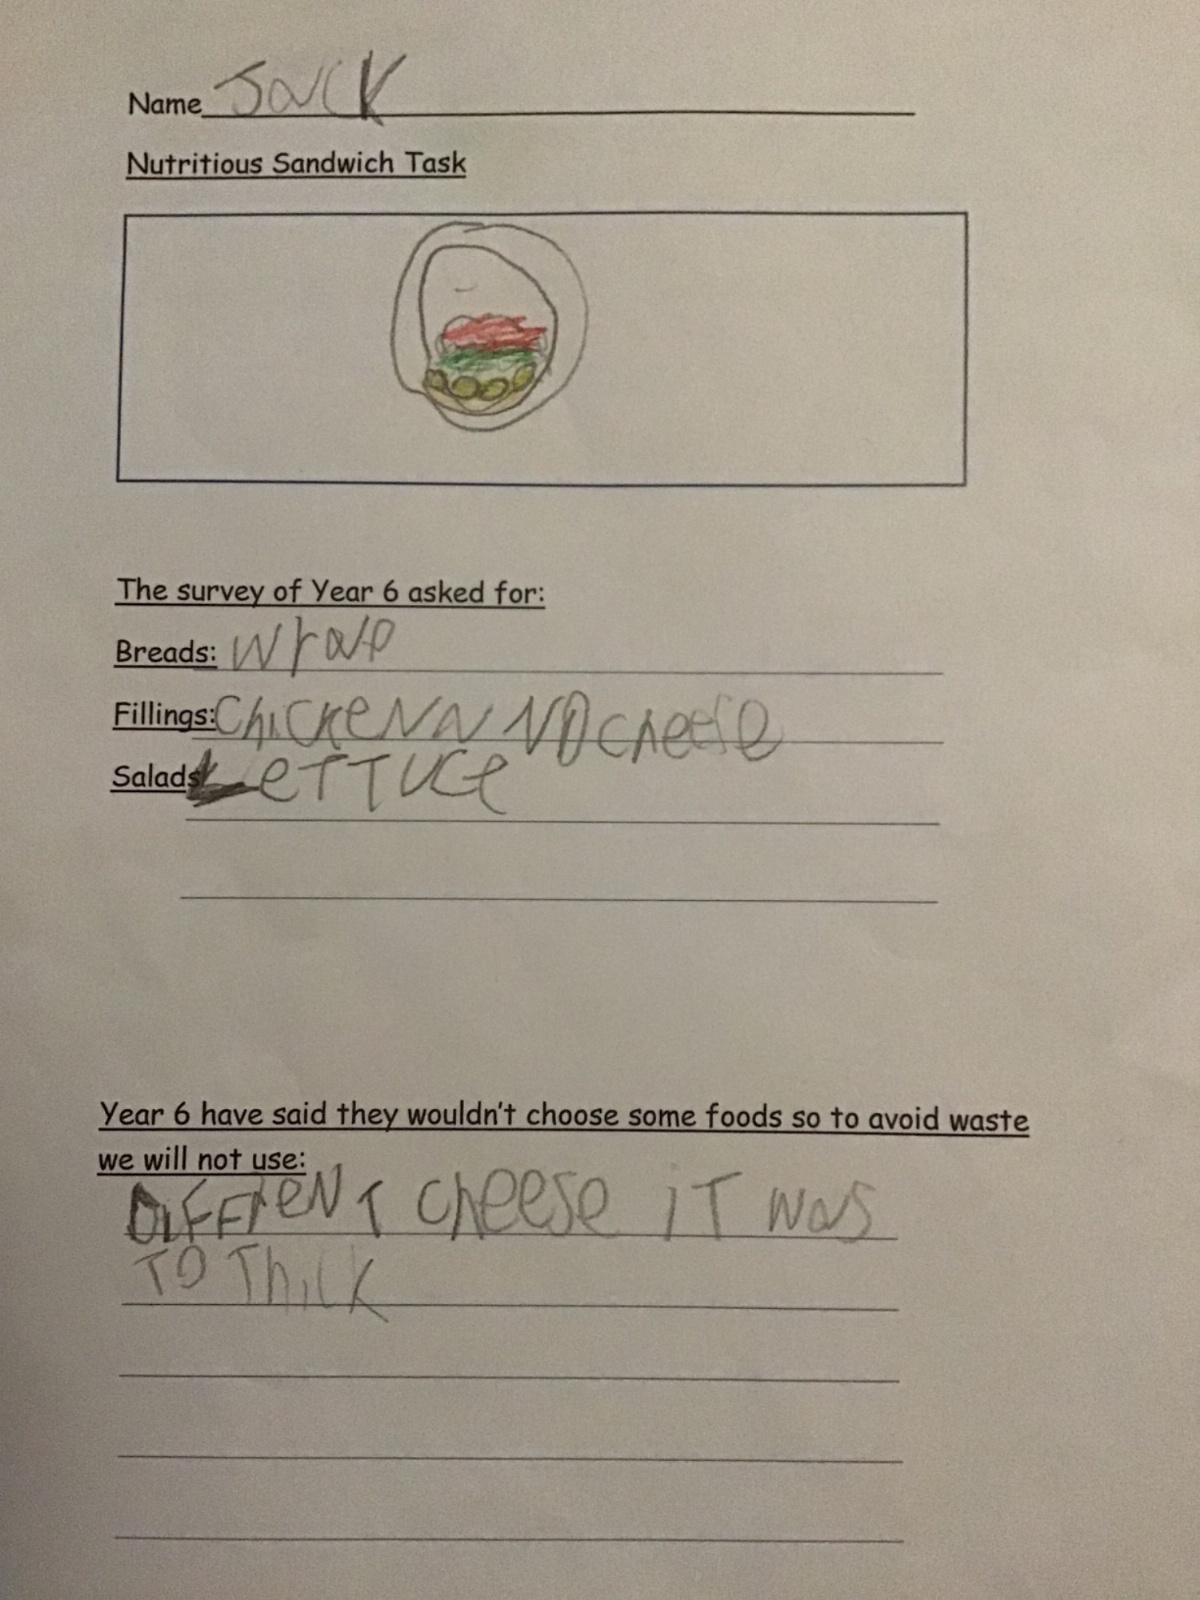 Name Jack
Nutritious Sandwich Task
The survey of Year 6 asked for:
Breads: wrap
Fillings: ChickeNN NO cheese
Salads LeTTUCe
Year 6 have said they wouldn't choose some foods so to avoid waste
we will not use:
DiFFreNT cheese iT was
TO Thick